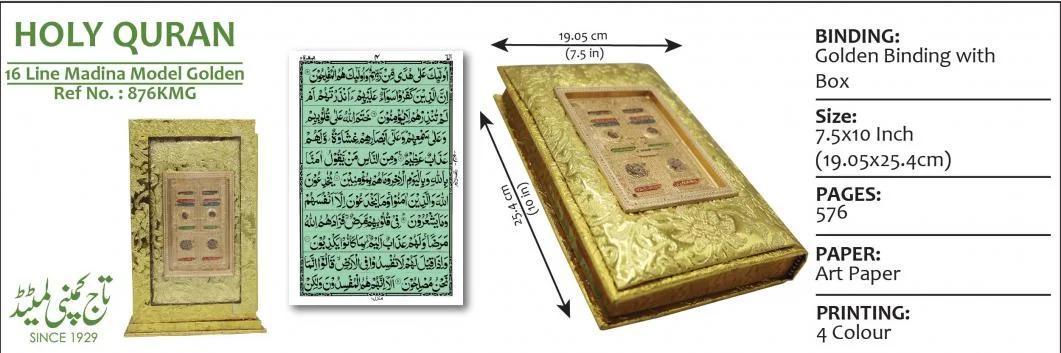 HOLY QURAN
16 Line Madina Model Golden
Ref No. : 876KMG
تاج کمپنی لمیٹڈ
SINCE 1929
اُولٰٓئِكَ عَلٰی هُدًی مِّنْ رَّبِّهِمْ وَاُولٰٓئِكَ هُمُ الْمُفْلِحُوْنَ
اِنَّ الَّذِیْنَ كَفَرُوْا سَوَآءٌ عَلَیْهِمْ ءَاَنْذَرْتَهُمْ اَمْ
لَمْ تُنْذِرْهُمْ لَا یُؤْمِنُوْنَ خَتَمَ اللّٰهُ عَلٰی قُلُوْبِهِمْ
وَعَلٰی سَمْعِهِمْ وَعَلٰۤی اَبْصَارِهِمْ غِشَاوَةٌ وَّلَهُمْ
عَذَابٌ عَظِیْمٌ وَمِنَ النَّاسِ مَنْ یَّقُوْلُ اٰمَنَّا
بِاللّٰهِ وَبِالْیَوْمِ الْاٰخِرِ وَمَا هُمْ بِمُؤْمِنِیْنَ یُخٰدِعُوْنَ
اللّٰهَ وَالَّذِیْنَ اٰمَنُوْا وَمَا یَخْدَعُوْنَ اِلَّاۤ اَنْفُسَهُمْ
وَمَا یَشْعُرُوْنَ فِیْ قُلُوْبِهِمْ مَّرَضٌ فَزَادَهُمُ اللّٰهُ
مَرَضًا وَلَهُمْ عَذَابٌ اَلِیْمٌ بِمَا كَانُوْا یَكْذِبُوْنَ
وَاِذَا قِیْلَ لَهُمْ لَا تُفْسِدُوْا فِی الْاَرْضِ قَالُوْۤا اِنَّمَا
نَحْنُ مُصْلِحُوْنَ اَلَاۤ اِنَّهُمْ هُمُ الْمُفْسِدُوْنَ وَلٰكِنْ
19.05 cm
(7.5 in)
25.4 cm
(10 in)
BINDING:
Golden Binding with
Box
Size:
7.5x10 Inch
(19.05x25.4cm)
PAGES:
576
PAPER:
Art Paper
PRINTING:
4 Colour